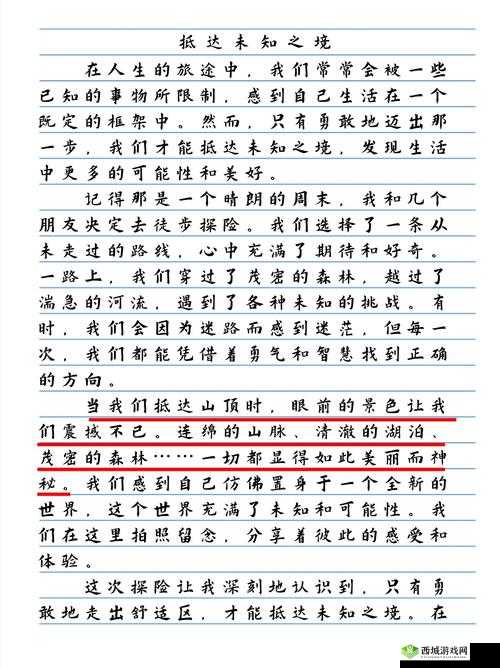 抵达未知之境
在人生的旅途中，我们常常会被一些
已知的事物所限制，感到自己生活在一个
既定的框架中。然而，只有勇敢地迈出那
一步，我们才能抵达未知之境，发现生活
中更多的可能性和美好。
记得那是一个晴朗的周末，我和几个
朋友决定去徒步探险。我们选择了一条从
未走过的路线，心中充满了期待和好奇。
一路上，我们穿过了茂密的森林，越过了
湍急的河流，遇到了各种未知的挑战。有
时，我们会因为迷路而感到迷茫，但每一
次，我们都能凭借着勇气和智慧找到正确
的方向。
当我们抵达山顶时，眼前的景色让我
们震撼不已。连绵的山脉、清澈的湖泊、
茂密的森林……一切都显得如此美丽而神
秘。我们感到自己仿佛置身于一个全新的
世界，这个世界充满了未知和可能性。我
们在这里拍照留念，分享着彼此的感受和
体验。
这次探险让我深刻地认识到，只有勇
敢地走出舒适区，才能抵达未知之境。在
西城游戏网